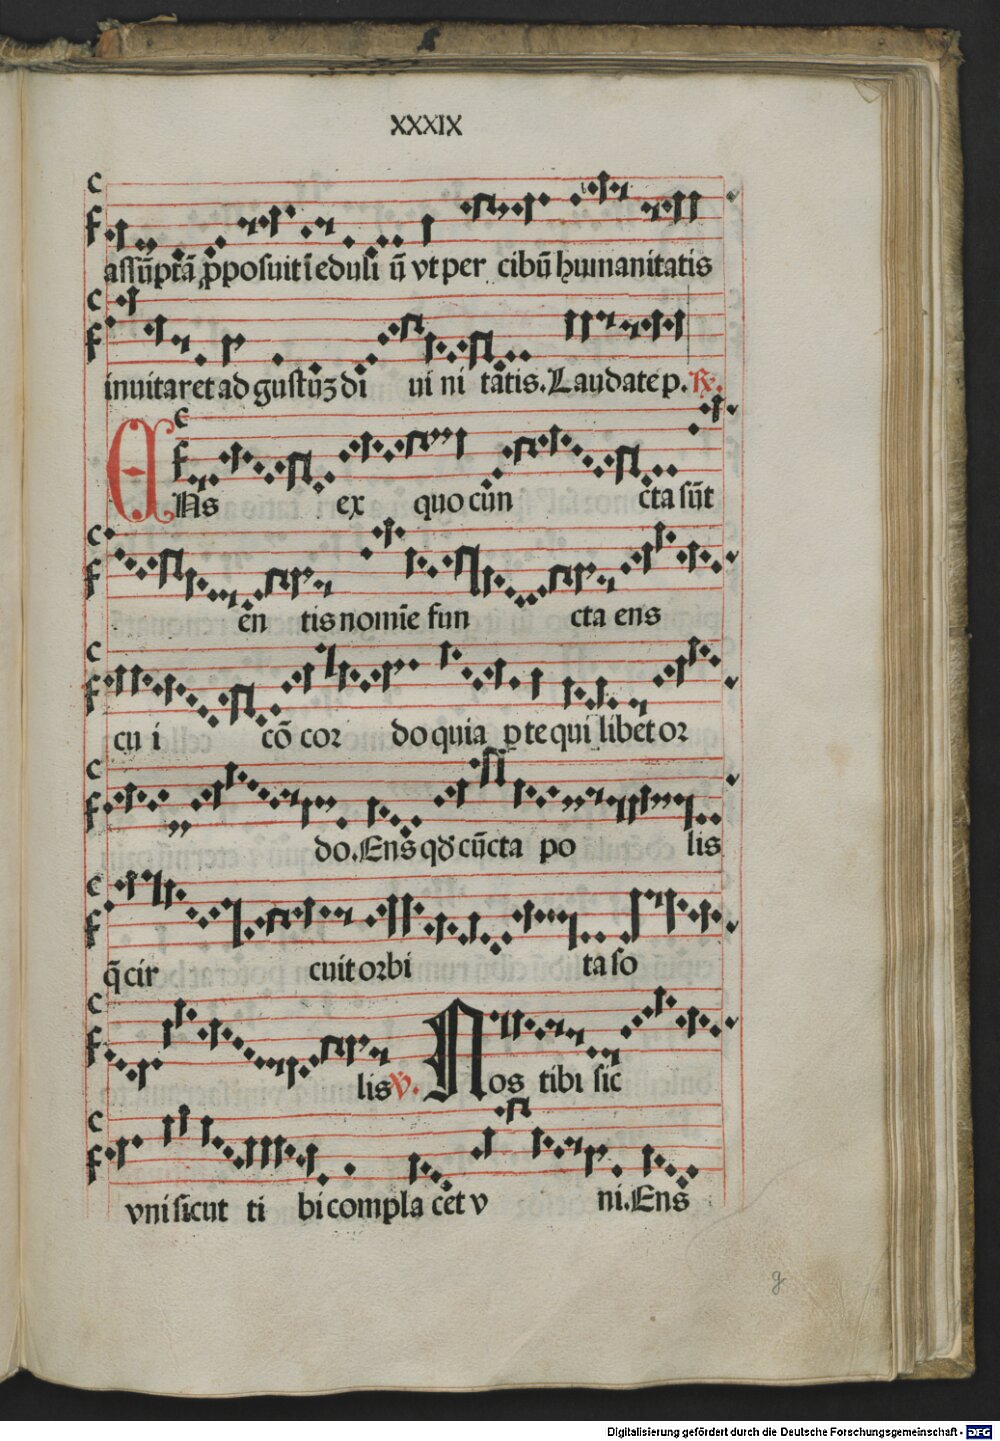 XXXIX
assūptā ꝓposuit i edusi ū vt per cibū humanitatis
inuitaret ad gustūꝫ di ui ni tatis. Laudate p. ℟.
ENs ex quo cun cta sūt
en tis nomīe fun cta ens
cu i cō cor do quia p te qui libet or
do. Ens qď cūcta po lis
q̄ cir cuit orbi ta so
lis ℣. Nos tibi sic
vni sicut ti bi compla cet v ni. Ens
g
Digitalisierung gefördert durch die Deutsche Forschungsgemeinschaft - DFG